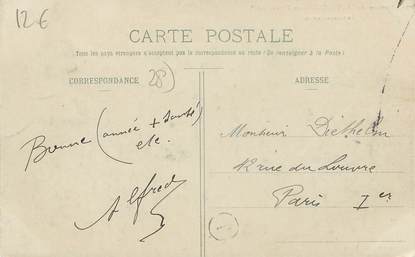 12€
CARTE POSTALE
Tous les pays étrangers n'acceptent pas la correspondance au recto (Se renseigner à la Poste)
CORRESPONDANCE
28)
ADRESSE
Bonne (année + santé)
etc.
Alfred
Monsieur Diethelm
42 rue du Louvre
Paris 1er